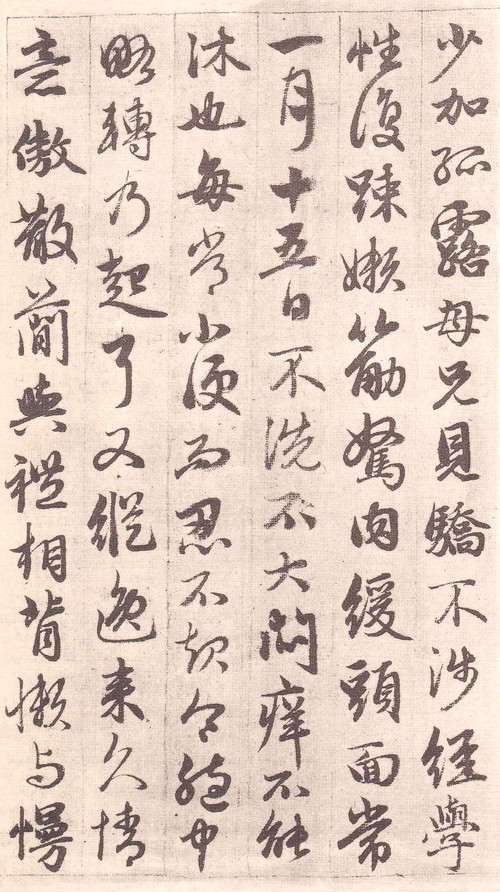 少加孤露母兄見驕不涉經學
性復踈嬾筋駑肉緩頭面常
一月十五日不洗不大悶痒不能
沐也每常小便而忍不起令胞中
略轉乃起耳又縱逸来久情
意傲散蕳與禮相背懶与慢